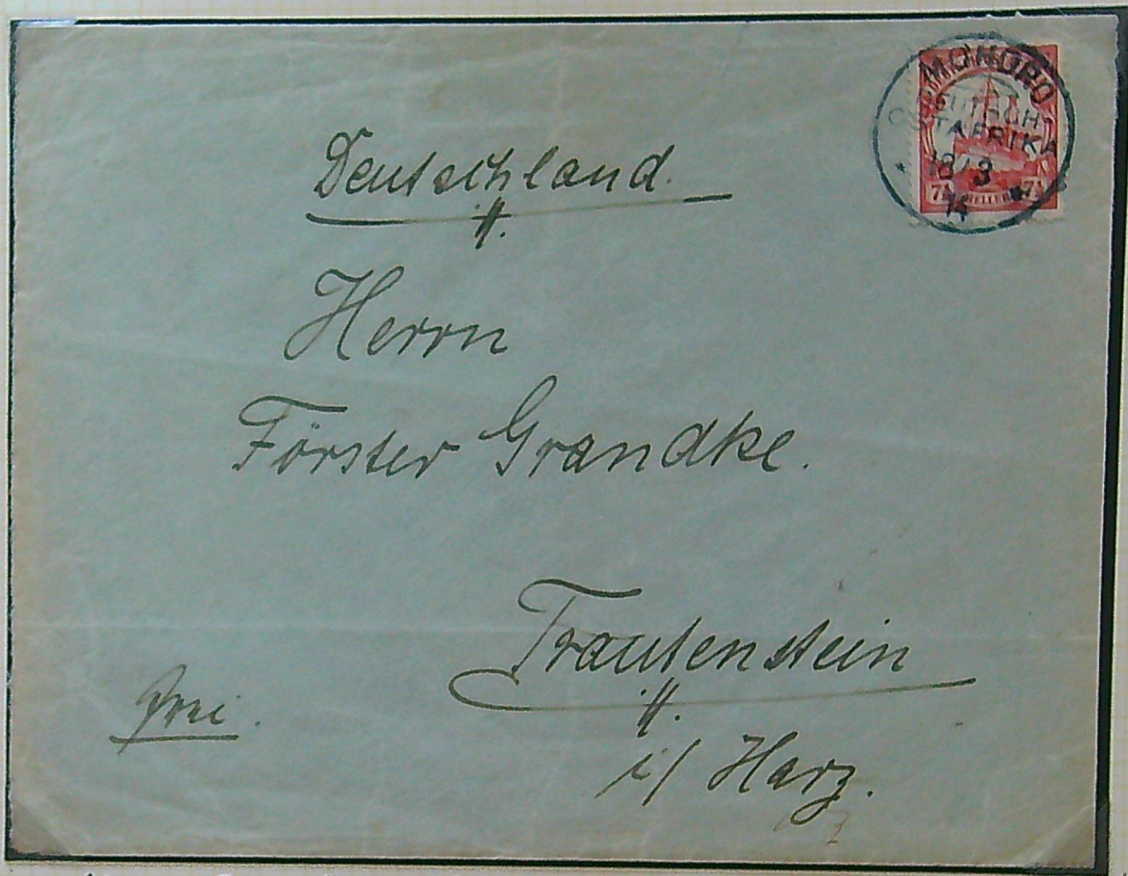 MOHORO
DEUTSCH-
OSTAFRIKA
18/3
14
7½ HELLER 7½
Deutschland.
Herrn
Förster Grandke.
Trautenstein
i/ Harz.
frei.